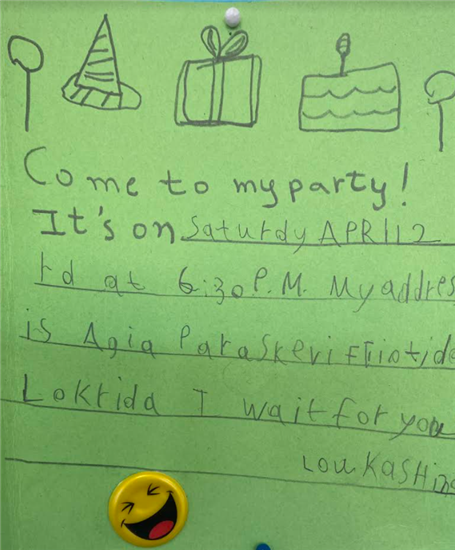 Come to my party!
It's on Saturdy APRIL 2
rd at 6:30 P.M. My addres
is Agia Paraskevi Ftiotide
Lokrida I wait for you
LOUKASHin